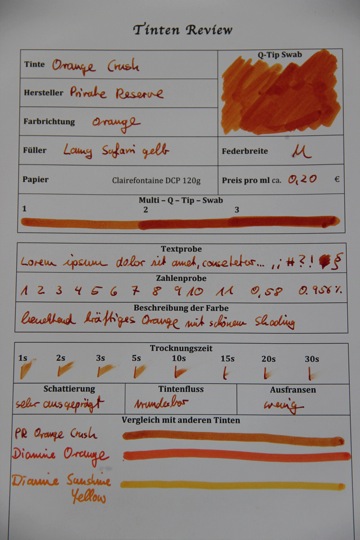 Tinten Review
Q-Tip Swab
Tinte Orange Crush
Hersteller Private Reserve
Farbrichtung Orange
Füller Lamy Safari gelb
Federbreite M
Papier Clairefontaine DCP 120g
Preis pro ml ca. 0,20 €
Multi – Q – Tip – Swab
1 2 3
Textprobe
Lorem ipsum dolor sit amet, consetetur... ,; # ?! § 
Zahlenprobe
1 2 3 4 5 6 7 8 9 10 11 0,58 0.956%
Beschreibung der Farbe
leuchtend kräftiges Orange mit schönem Shading
Trocknungszeit
1s 2s 3s 5s 10s 15s 20s 30s
Schattierung Tintenfluss Ausfransen
sehr ausgeprägt wunderbar wenig
Vergleich mit anderen Tinten
PR Orange Crush
Diamine Orange
Diamine Sunshine
Yellow